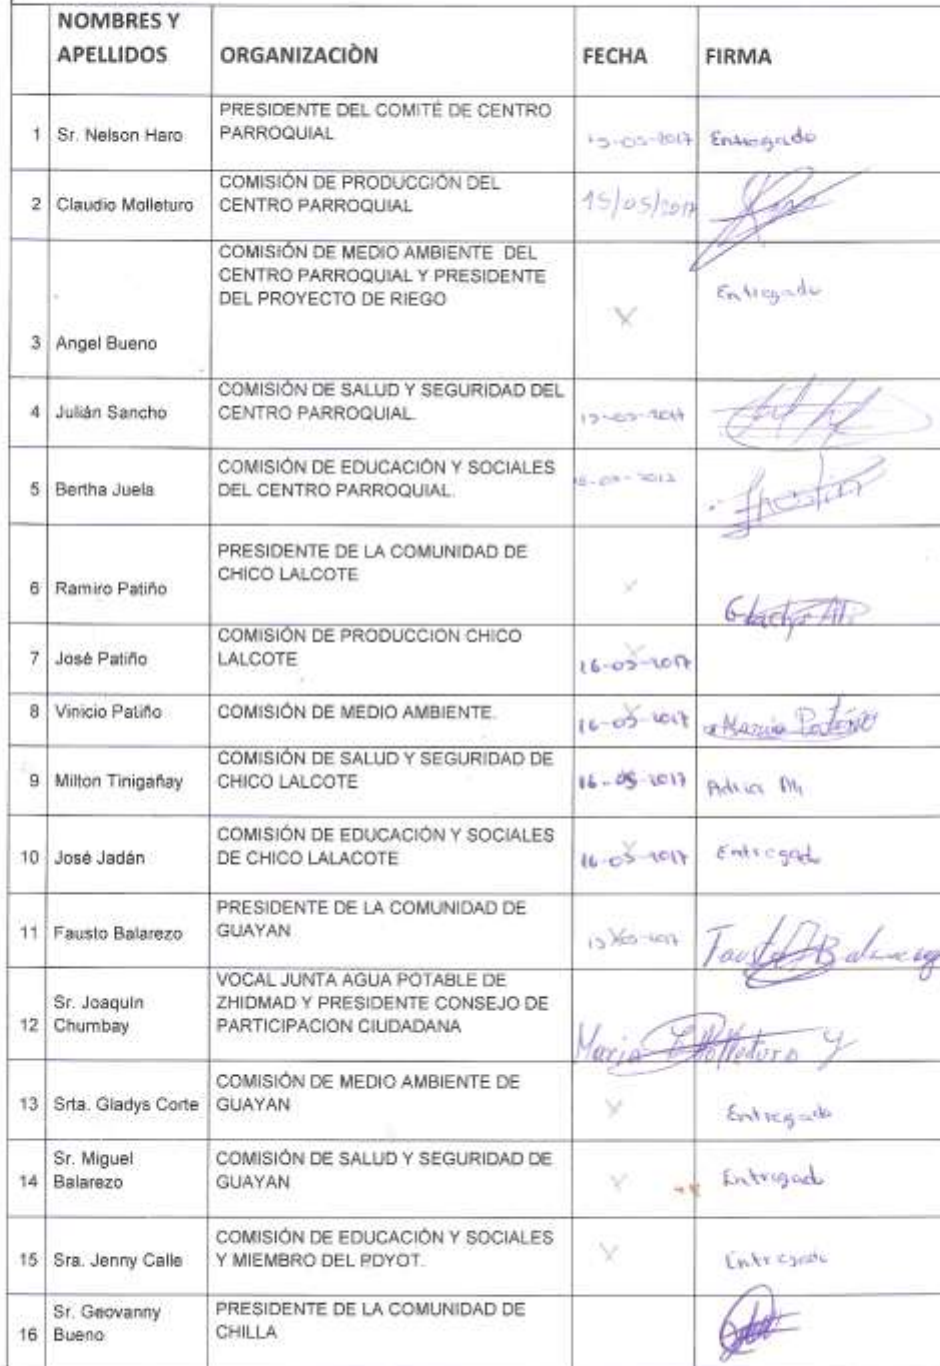 NOMBRES Y
APELLIDOS
ORGANIZACIÒN
FECHA
FIRMA
1 Sr. Nelson Haro
PRESIDENTE DEL COMITÉ DE CENTRO
PARROQUIAL
15-05-2017 Entregado
2 Claudio Molleturo
COMISIÓN DE PRODUCCIÓN DEL
CENTRO PARROQUIAL
15/05/2017
3 Angel Bueno
COMISIÓN DE MEDIO AMBIENTE DEL
CENTRO PARROQUIAL Y PRESIDENTE
DEL PROYECTO DE RIEGO
X
Entregado
4 Julián Sancho
COMISIÓN DE SALUD Y SEGURIDAD DEL
CENTRO PARROQUIAL.
15-05-2017
5 Bertha Juela
COMISIÓN DE EDUCACIÓN Y SOCIALES
DEL CENTRO PARROQUIAL.
6 Ramiro Patiño
PRESIDENTE DE LA COMUNIDAD DE
CHICO LALCOTE
X
Gladys
7 José Patiño
COMISIÓN DE PRODUCCION CHICO
LALCOTE
16-05-2017
8 Vinicio Patiño
COMISIÓN DE MEDIO AMBIENTE.
16-05-2017
Patiño
9 Milton Tinigañay
COMISIÓN DE SALUD Y SEGURIDAD DE
CHICO LALCOTE
16-05-2017
10 José Jadán
COMISIÓN DE EDUCACIÓN Y SOCIALES
DE CHICO LALACOTE
16-05-2017 Entregado
11 Fausto Balarezo
PRESIDENTE DE LA COMUNIDAD DE
GUAYAN
Fausto Balarezo
12 Sr. Joaquin
Chumbay
VOCAL JUNTA AGUA POTABLE DE
ZHIDMAD Y PRESIDENTE CONSEJO DE
PARTICIPACION CIUDADANA
Maria Molleturo Y
13 Srta. Gladys Corte
COMISIÓN DE MEDIO AMBIENTE DE
GUAYAN
X
Entregado
14 Sr. Miguel
Balarezo
COMISIÓN DE SALUD Y SEGURIDAD DE
GUAYAN
X
Entregado
15 Sra. Jenny Calle
COMISIÓN DE EDUCACIÓN Y SOCIALES
Y MIEMBRO DEL PDYOT.
X
Entregado
16 Sr. Geovanny
Bueno
PRESIDENTE DE LA COMUNIDAD DE
CHILLA